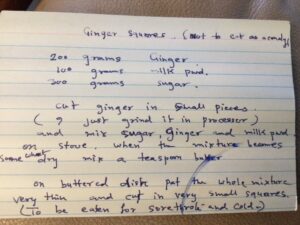 Ginger squares. (not to eat as candy)
200 grams Ginger
100 grams milk pwd.
200 grams sugar.
cut ginger in small pieces.
( I just grind it in processor)
and mix sugar, ginger and milk pwd
on stove. when the mixture becomes
some what dry mix a teaspoon butter
on buttered dish put the whole mixture
very thin and cut in very small squares.
(To be eaten for sore throat and cold.)